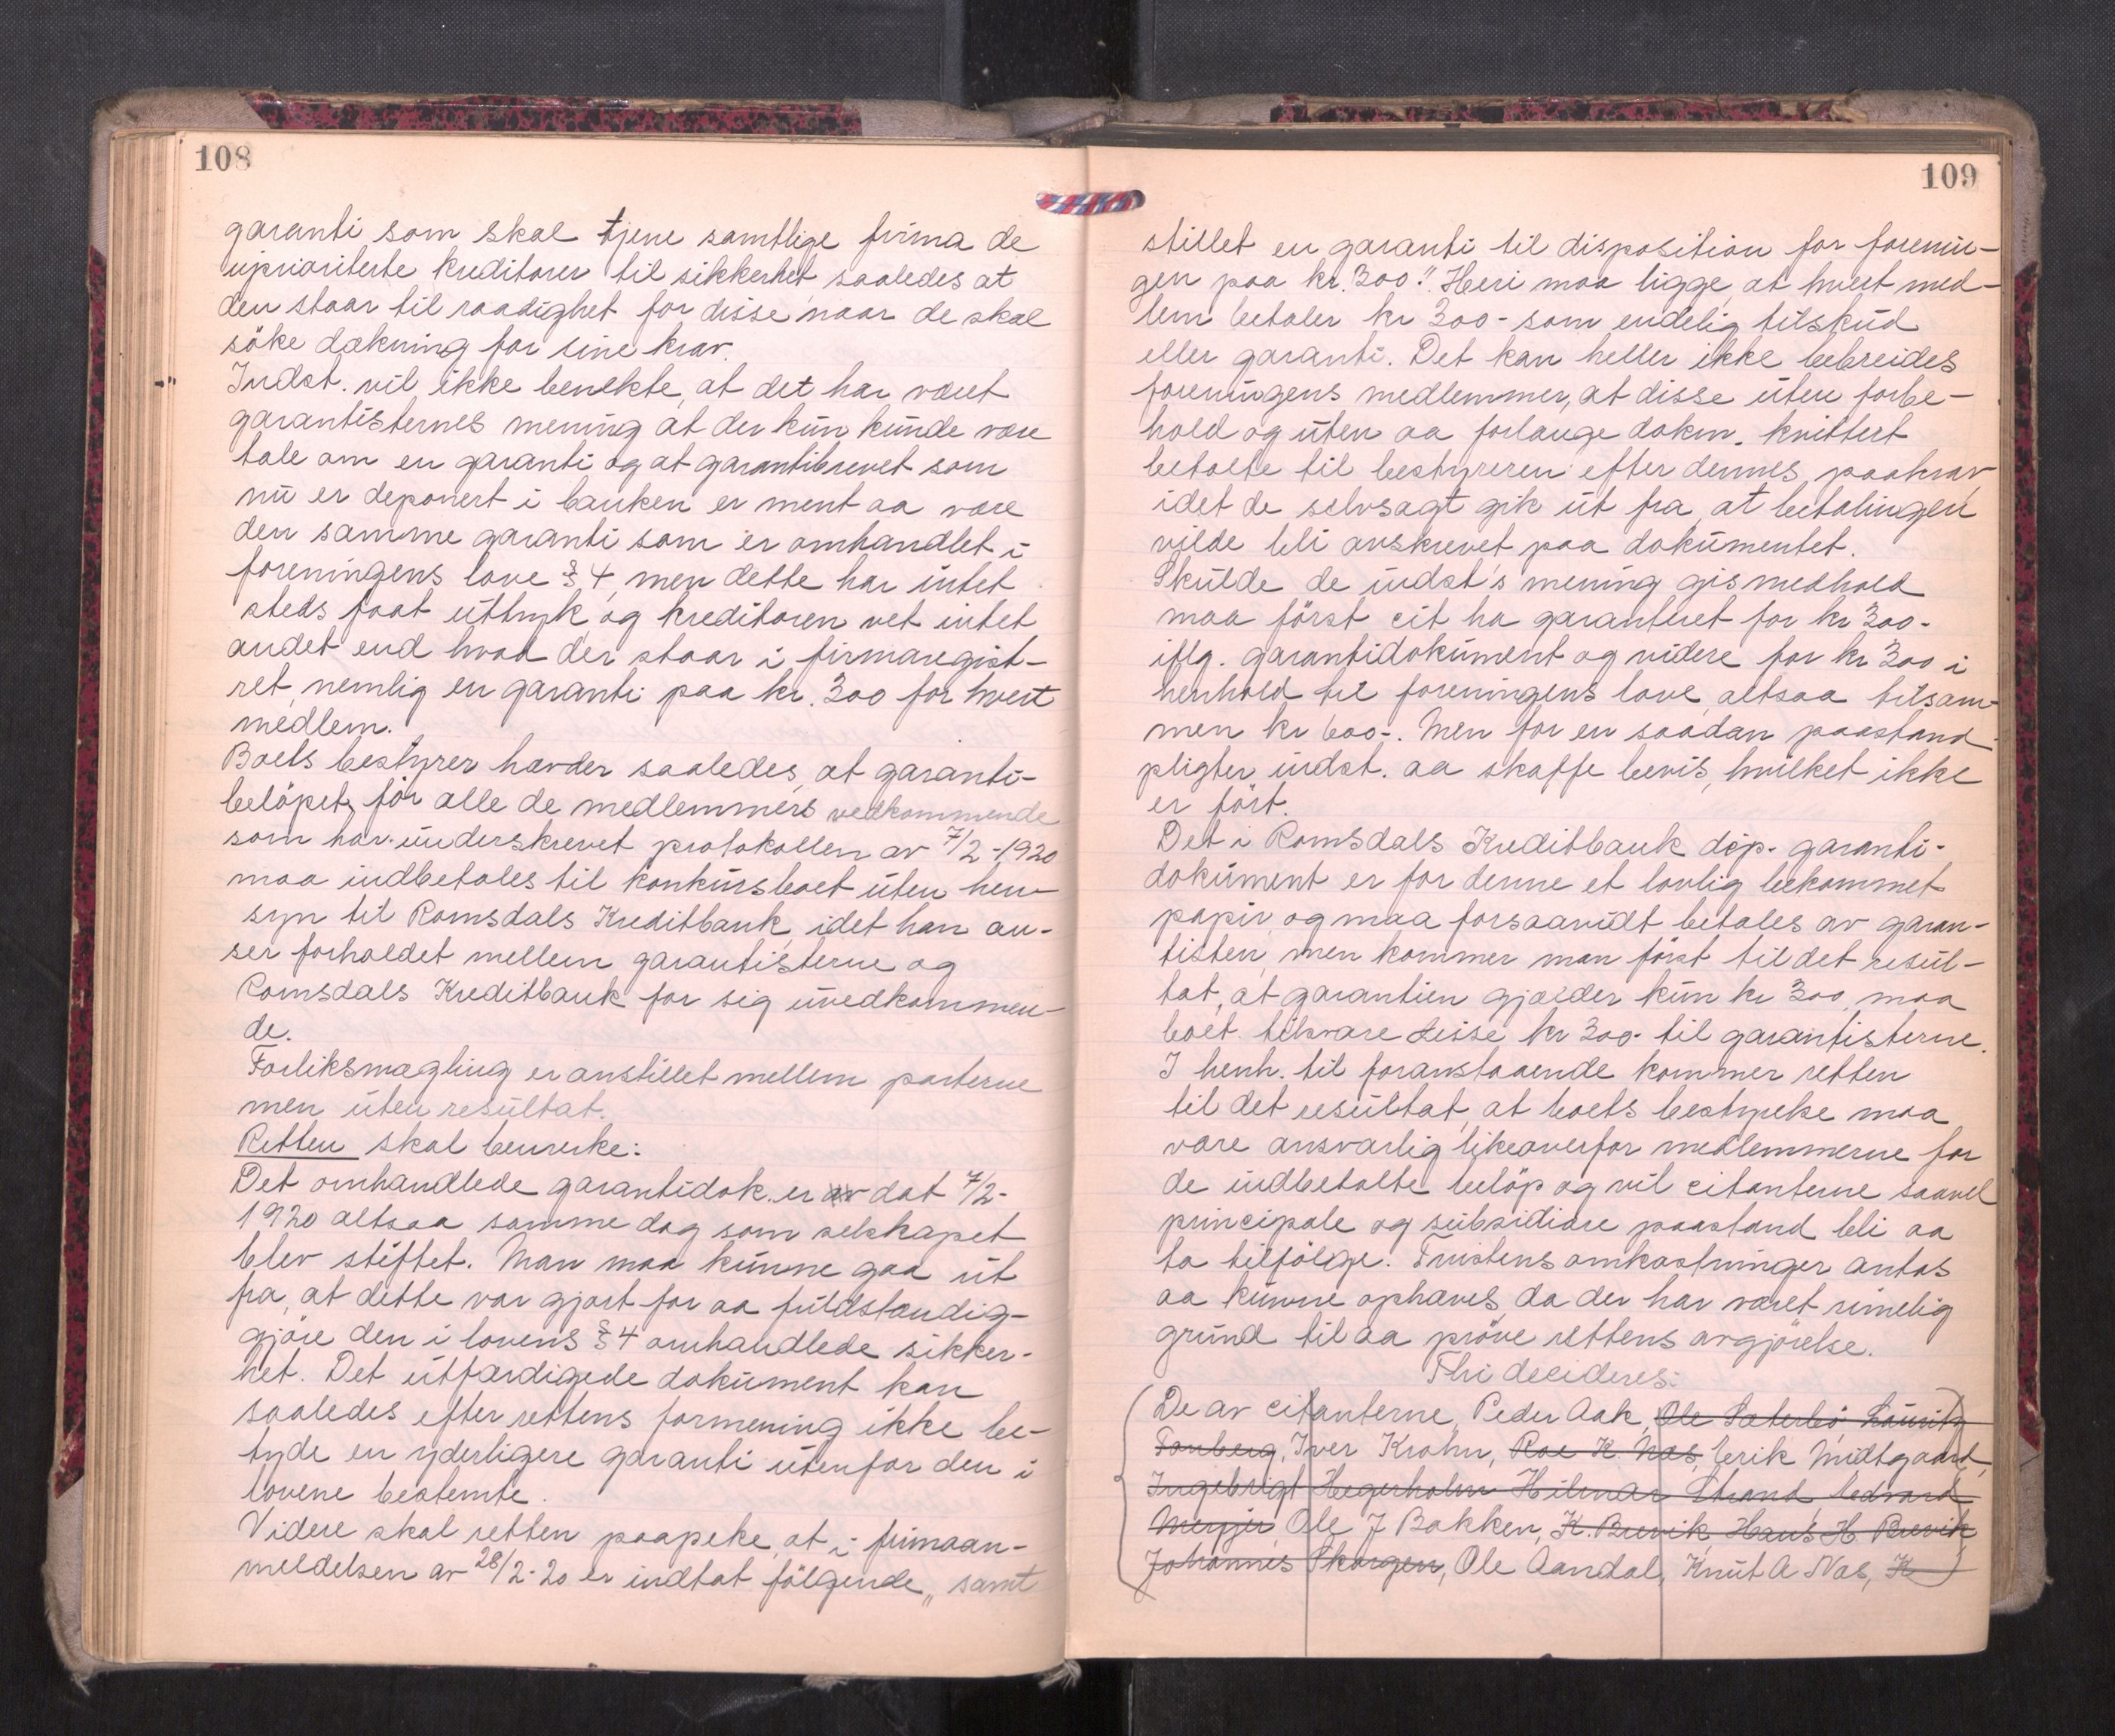 108
garanti som skal tjene samtlige firma de
uprioriterte kreditorer til sikkerhet saaledes at
den staar til raadighet for disse naar de skal
söke dækning for sine krav.
Indst. vil ikke benekte, at det har været
garantisternes mening at der kun kunde være
tale om en garanti og at garantibrevet som
nu er deponert i banken er ment aa være
den samme garanti som er omhandlet i
foreningens love § 4, men dette har intet
steds faat uttryk og kreditoren vet intet
andet end hvad der staar i firmaregist-
ret, nemlig en garanti paa kr. 300 for hvert
medlem.
Boets bestyrer hævder saaledes, at garanti-
belöpet, for alle de medlemmers vedkommende
som har underskrevet protokollen av 7/2-1920
maa indbetales til konkursboet uten hen-
syn til Romsdals Kreditbank, idet han an-
ser forholdet mellem garantisterne og
Romsdals Kreditbank for sig uvedkommen-
de.
Forliksmægling er anstillet mellem parterne
men uten resultat.
Retten skal bemerke:
Det omhandlede garantidok. er av dat 7/2-
1920 altsaa samme dag som selskapet
blev stiftet. Man maa kunne gaa ut
fra, at dette var gjort for aa fuldstændig-
gjöre den i lovens § 4 omhandlede sikker-
het. Det utfærdigede dokument kan
saaledes efter rettens formening ikke be-
tyde en yderligere garanti utenfor den i
lovene bestemte.
Videre skal retten paapeke, at i firmaan-
meldelsen av 28/2-20 er indtat fölgende „samt
109
stillet en garanti til disposition for forenin-
gen paa kr. 300." Heri maa ligge, at hvert med-
lem betaler kr 300- som endelig tilskud
eller garanti. Det kan heller ikke bebreides
foreningens medlemmer, at disse uten forbe-
hold og uten aa forlange dokm. kvittert
betalte til bestyreren efter dennes paakrav
idet de selvsagt gik ut fra, at betalingen
vilde bli avskrevet paa dokumentet.
Skulde de indst's mening gis medhold
maa först cit ha garanteret for kr 300-
iflg. garantidokument og videre for kr 300 i
henhold til foreningens love, altsaa tilsam-
men kr 600-. Men for en saadan paastand
pligter indst. aa skaffe bevis, hvilket ikke
er fört.
Det i Romsdals Kreditbank dep. garanti-
dokument er for denne et lovlig bekommet
papir, og maa forsaavidt betales av garan-
tisten, men kommer man först til det resul-
tat, at garantien gjælder kun kr 300, maa
boet tilsvare disse kr 300- til garantisterne.
I henh. til foranstaaende kommer retten
til det resultat, at boets bestyrelse maa
være ansvarlig likeoverfor medlemmerne for
de indbetalte belöp og vil citanterne saavel
principale og subsidiære paastand bli aa
ta tilfölge. Tvistens omkostninger antas
aa kunne ophæves, da der har været rimelig
grund til aa pröve rettens avgjörelse.
Thi decideres:
De av citanterne, Peder Aak, Ole Sæterbö, Lauritz
Tomberg, Iver Krohn, Roe K. Næs, Erik Midtgaard,
Ingebrigt Hegerholm Hilmar Strand Edvard
Meyjer, Ole J Bakken, K. Brevik, Hans H. Brevik
Johannes Skorgen, Ole Aandal, Knut A Næs, K